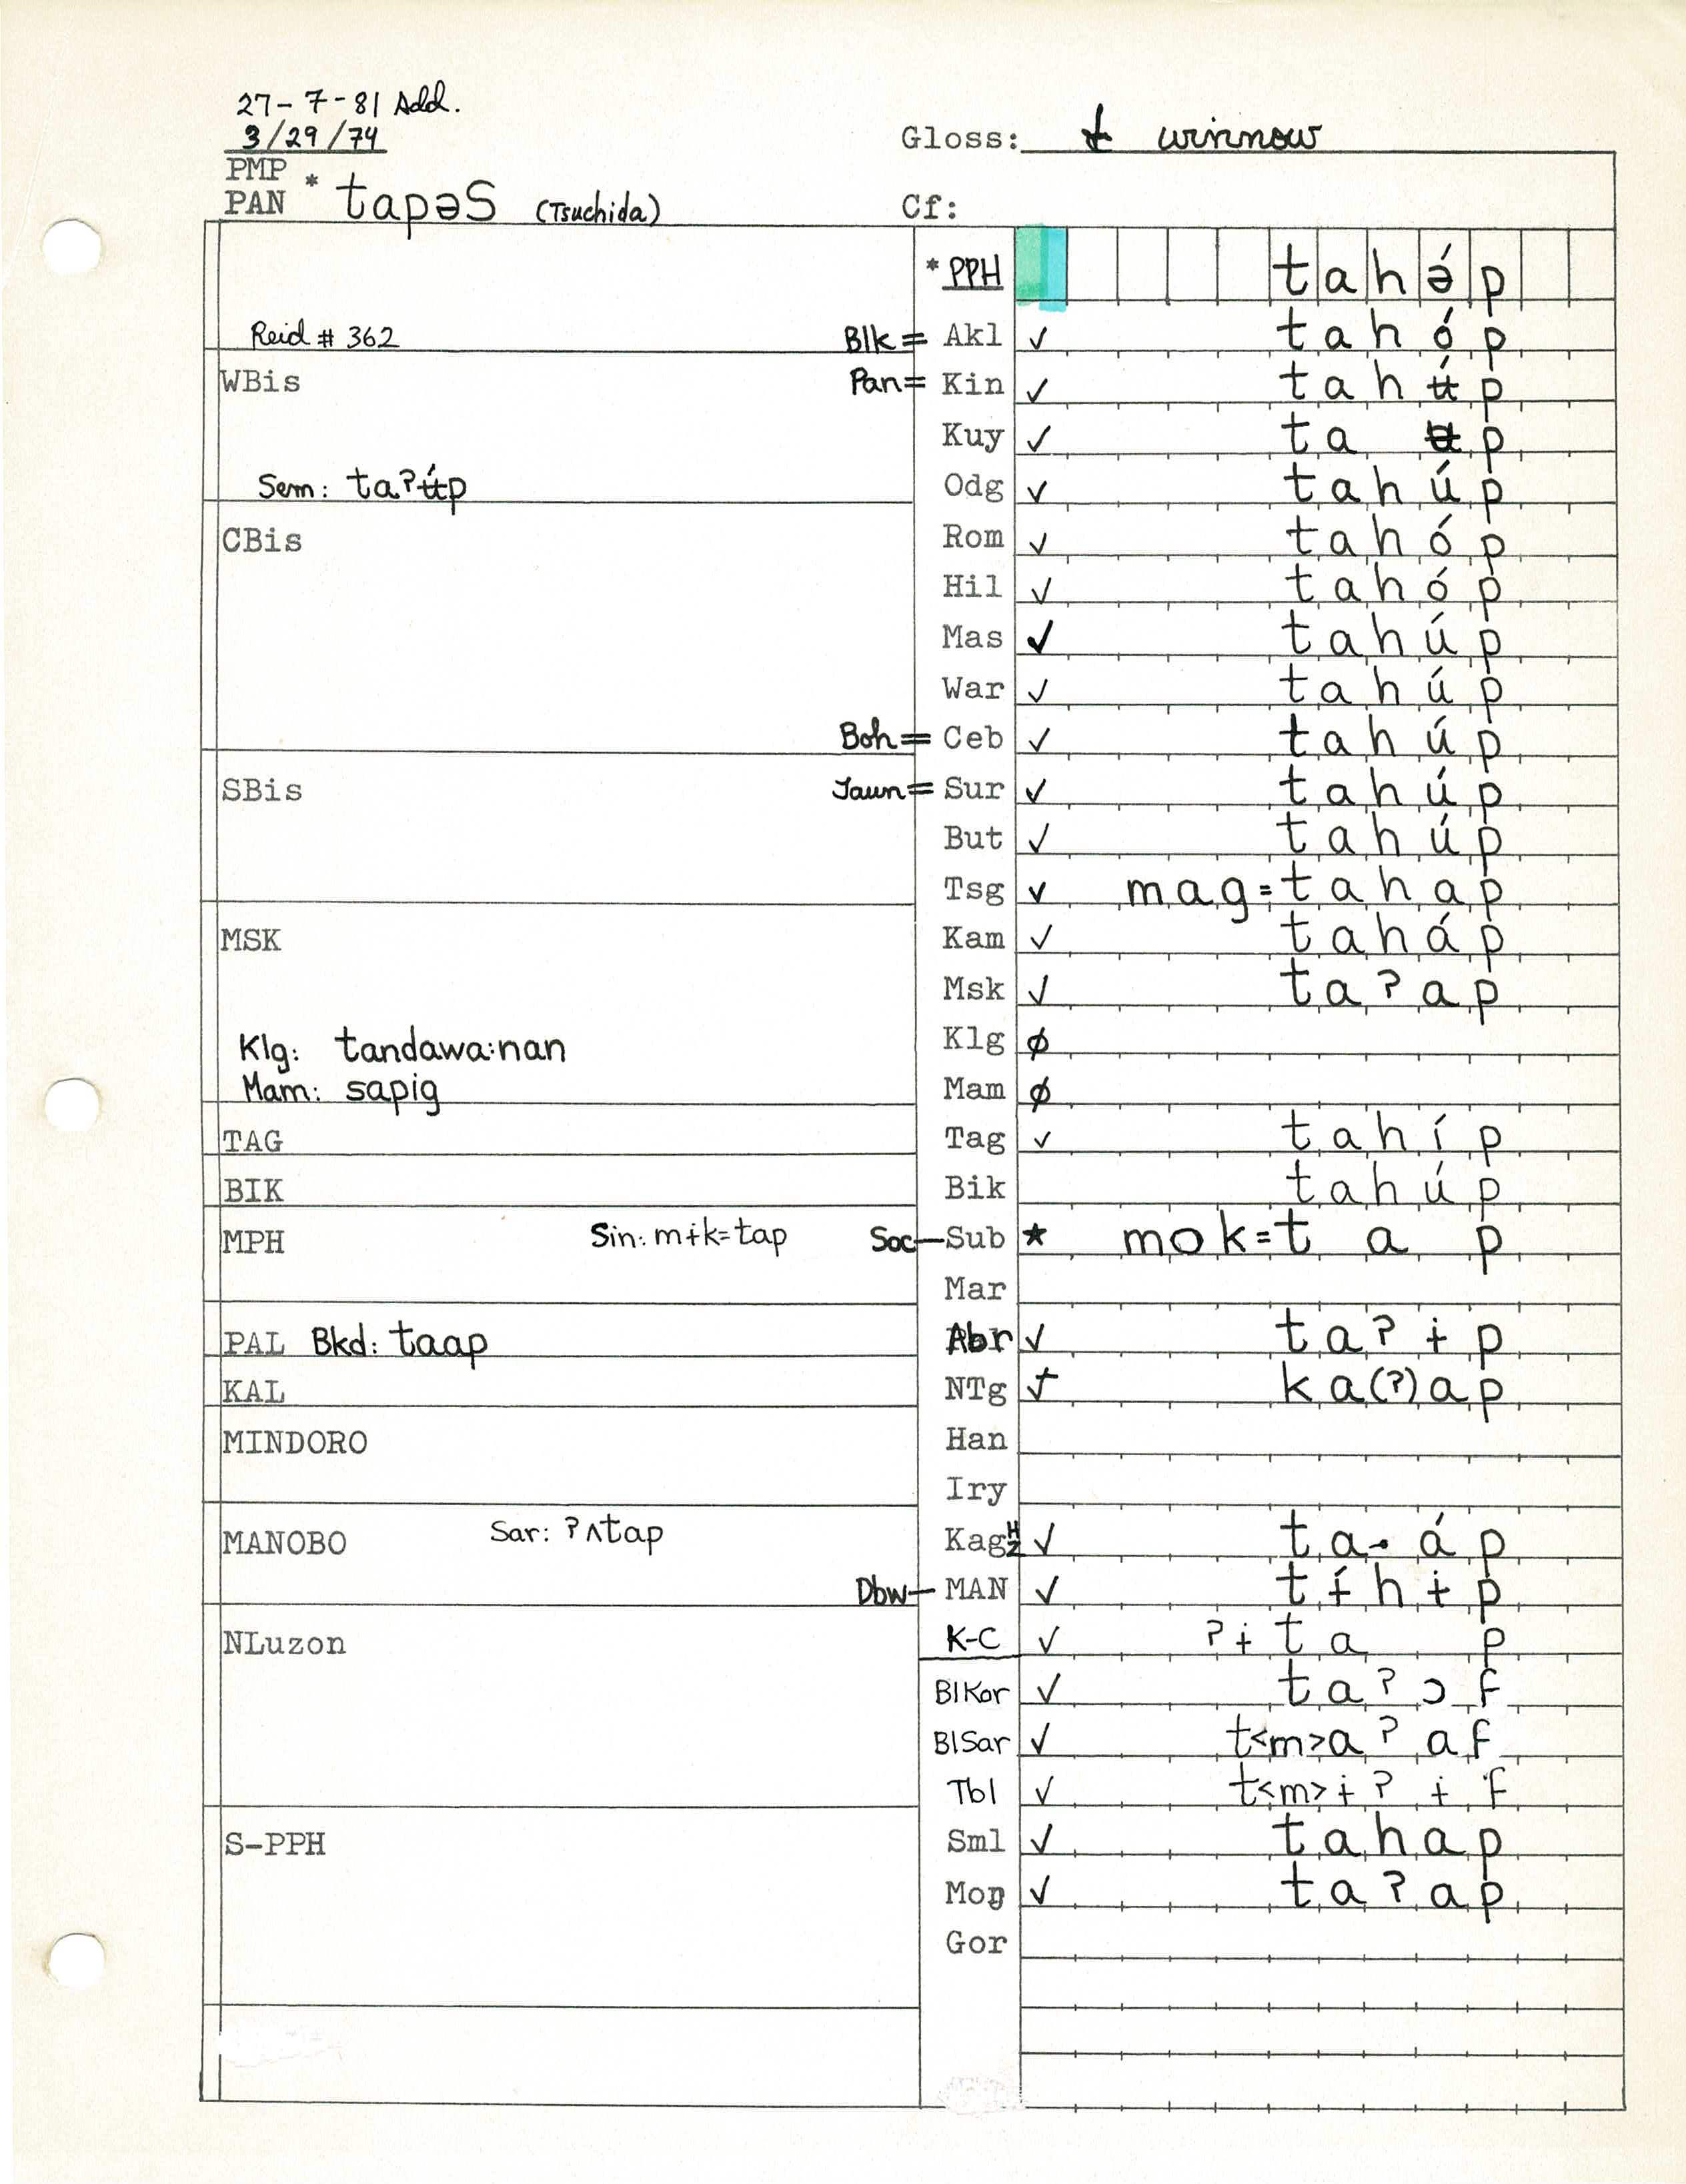 27-7-81 Add.
3/29/74
Gloss: t winnow
PMP
PAN * tapəS (Tsuchida)
Cf:
* PPH tahə́p
Reid # 362 Blk = Akl ✓ tahóp
WBis Pan = Kin ✓ tahʉ́p
Kuy ✓ ta ʉp
Sem: taʔʉ́p Odg ✓ tahúp
CBis Rom ✓ tahóp
Hil ✓ tahóp
Mas ✓ tahúp
War ✓ tahúp
Boh = Ceb ✓ tahúp
SBis Jaun = Sur ✓ tahúp
But ✓ tahúp
Tsg ✓ mag=tahap
MSK Kam ✓ taháp
Msk ✓ taʔap
Klg: tandawa:nan Klg ∅
Mam: sapig Mam ∅
TAG Tag ✓ tahíp
BIK Bik tahúp
MPH Sin: mɨk=tap Soc — Sub ★ mok=t a p
Mar
PAL Bkd: taap Abr ✓ taʔɨp
KAL NTg ka(ʔ)ap
MINDORO Han
Iry
MANOBO Sar: ʔʌtap Kag ✓ ta. áp
Dbw — MAN ✓ tɨ́hɨp
NLuzon K-C ✓ ʔɨta p
BlKor ✓ taʔɔf
BlSar ✓ t<m>aʔaf
Tbl ✓ t<m>ɨʔɨf
S-PPH Sml ✓ tahap
Moŋ ✓ taʔap
Gor